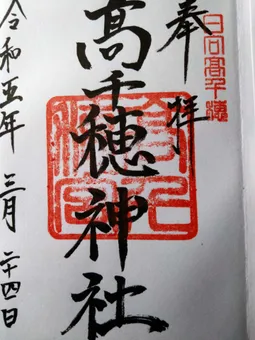 日向高千穂
奉拝
髙千穂神社
令和五年 三月 二十四日